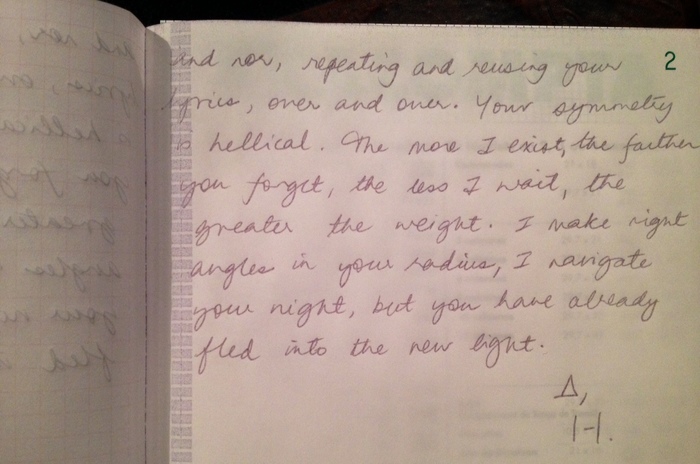 and nor, repeating and reusing your 2
lyrics, over and over. Your symmetry
is hellical. The more I exist, the farther
you forget, the less I wait, the
greater the weight. I make right
angles in your radius, I navigate
your night, but you have already
fled into the new light.
Δ,
H.